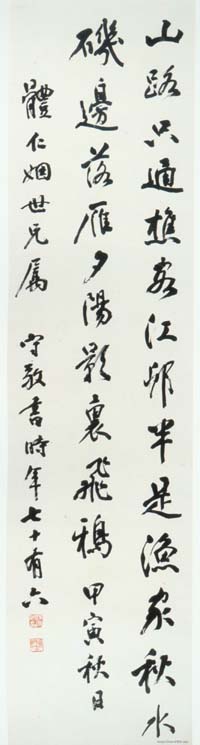 山路只通樵客江邨半是漁家秋水
磯邊落雁夕陽影裏飛鴉甲寅秋日
體仁姻世兄屬守敬書時年七十有六